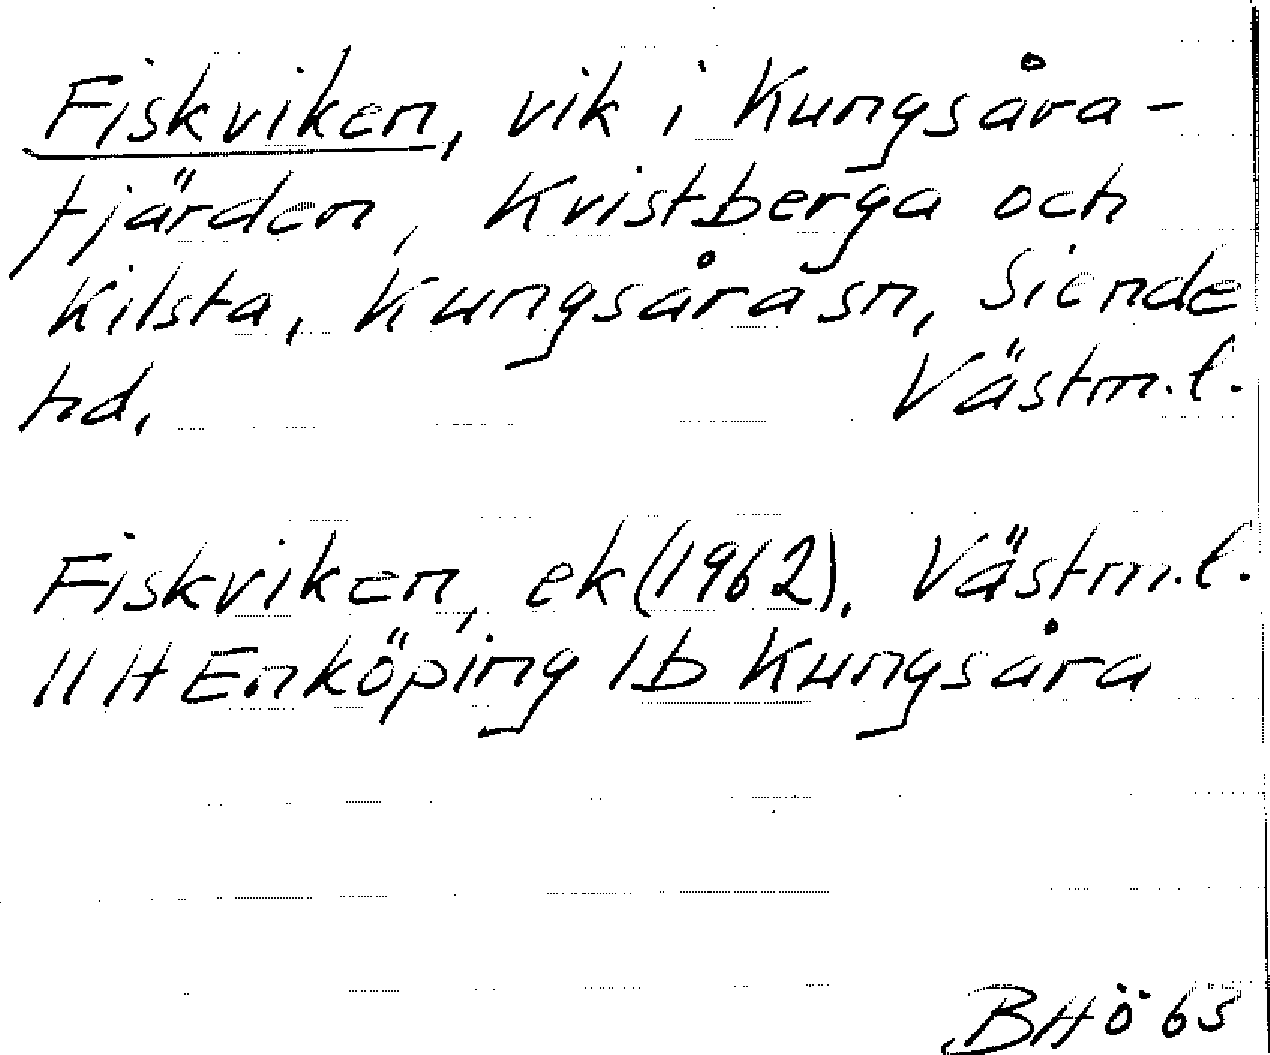 Fiskviken, vik i Kungsåra-
fjärden, Kvistberga och
Kilsta, Kungsåra sn, Siende
hd. Västm.l.
Fiskviken, ek (1962). Västm.l.
11 H Enköping 1b Kungsåra
BHö 63